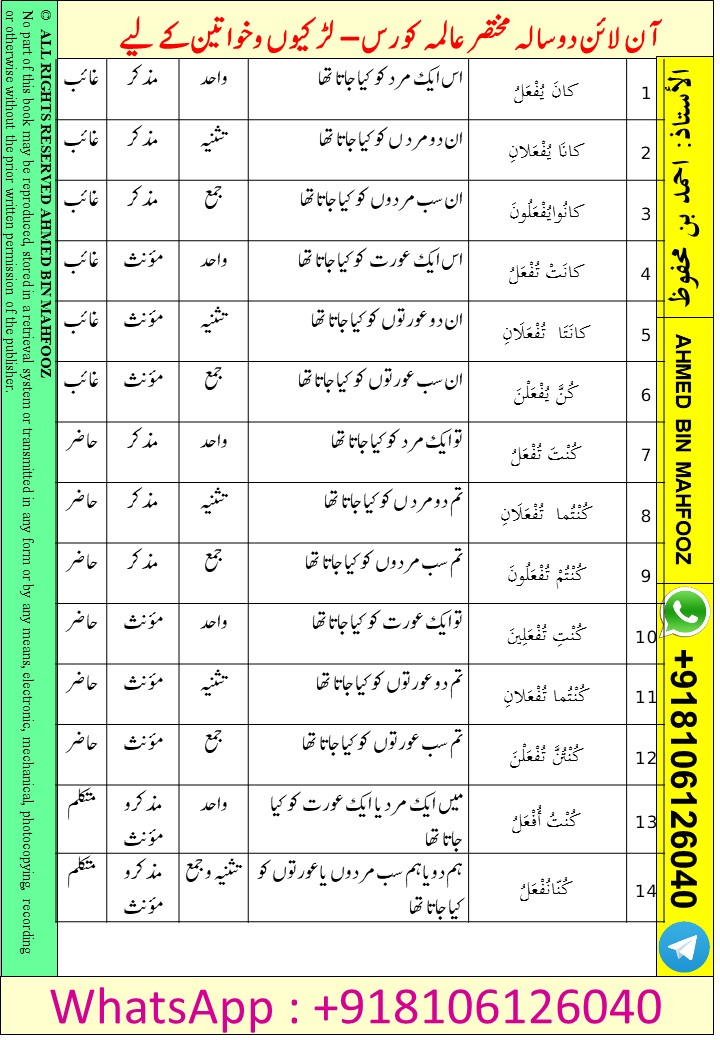 آن لائن دو سالہ مختصر عالمہ کورس – لڑکیوں و خواتین کے لیے
1 كانَ يُفْعَلُ اس ایک مرد کو کیا جاتا تھا واحد مذکر غائب
2 كانَا يُفْعَلانِ ان دو مردں کو کیا جاتا تھا تثنیہ مذکر غائب
3 كانُوايُفْعَلُونَ ان سب مردوں کو کیا جاتا تھا جمع مذکر غائب
4 كانَتْ تُفْعَلُ اس ایک عورت کو کیا جاتا تھا واحد مؤنث غائب
5 كانَتَا تُفْعَلَانِ ان دو عورتوں کو کیا جاتا تھا تثنیہ مؤنث غائب
6 كُنَّ يُفْعَلْنَ ان سب عورتوں کو کیا جاتا تھا جمع مؤنث غائب
7 كُنْتَ تُفْعَلُ تو ایک مرد کو کیا جاتا تھا واحد مذکر حاضر
8 كُنْتُما تُفْعَلَانِ تم دو مردں کو کیا جاتا تھا تثنیہ مذکر حاضر
9 كُنْتُمْ تُفْعَلُونَ تم سب مردوں کو کیا جاتا تھا جمع مذکر حاضر
10 كُنْتِ تُفْعَلِينَ تو ایک عورت کو کیا جاتا تھا واحد مؤنث حاضر
11 كُنْتُما تُفْعَلانِ تم دو عورتوں کو کیا جاتا تھا تثنیہ مؤنث حاضر
12 كُنْتُنَّ تُفْعَلْنَ تم سب عورتوں کو کیا جاتا تھا جمع مؤنث حاضر
13 كُنْتُ أُفْعَلُ میں ایک مرد یا ایک عورت کو کیا واحد مذکر و متکلم
جاتا تھا مؤنث
14 كُنّانُفْعَلُ ہم دو یا ہم سب مردوں یا عورتوں کو تثنیہ و جمع مذکر و متکلم
کیا جاتا تھا مؤنث
الأستاذ: احمد بن محفوظ
AHMED BIN MAHFOOZ
+918106126040
© ALL RIGHTS RESERVED AHMED BIN MAHFOOZ
No part of this book may be reproduced, stored in a retrieval system or transmitted in any form or by any means, electronic, mechanical, photocopying, recording
or otherwise without the prior written permission of the publisher.
WhatsApp : +918106126040